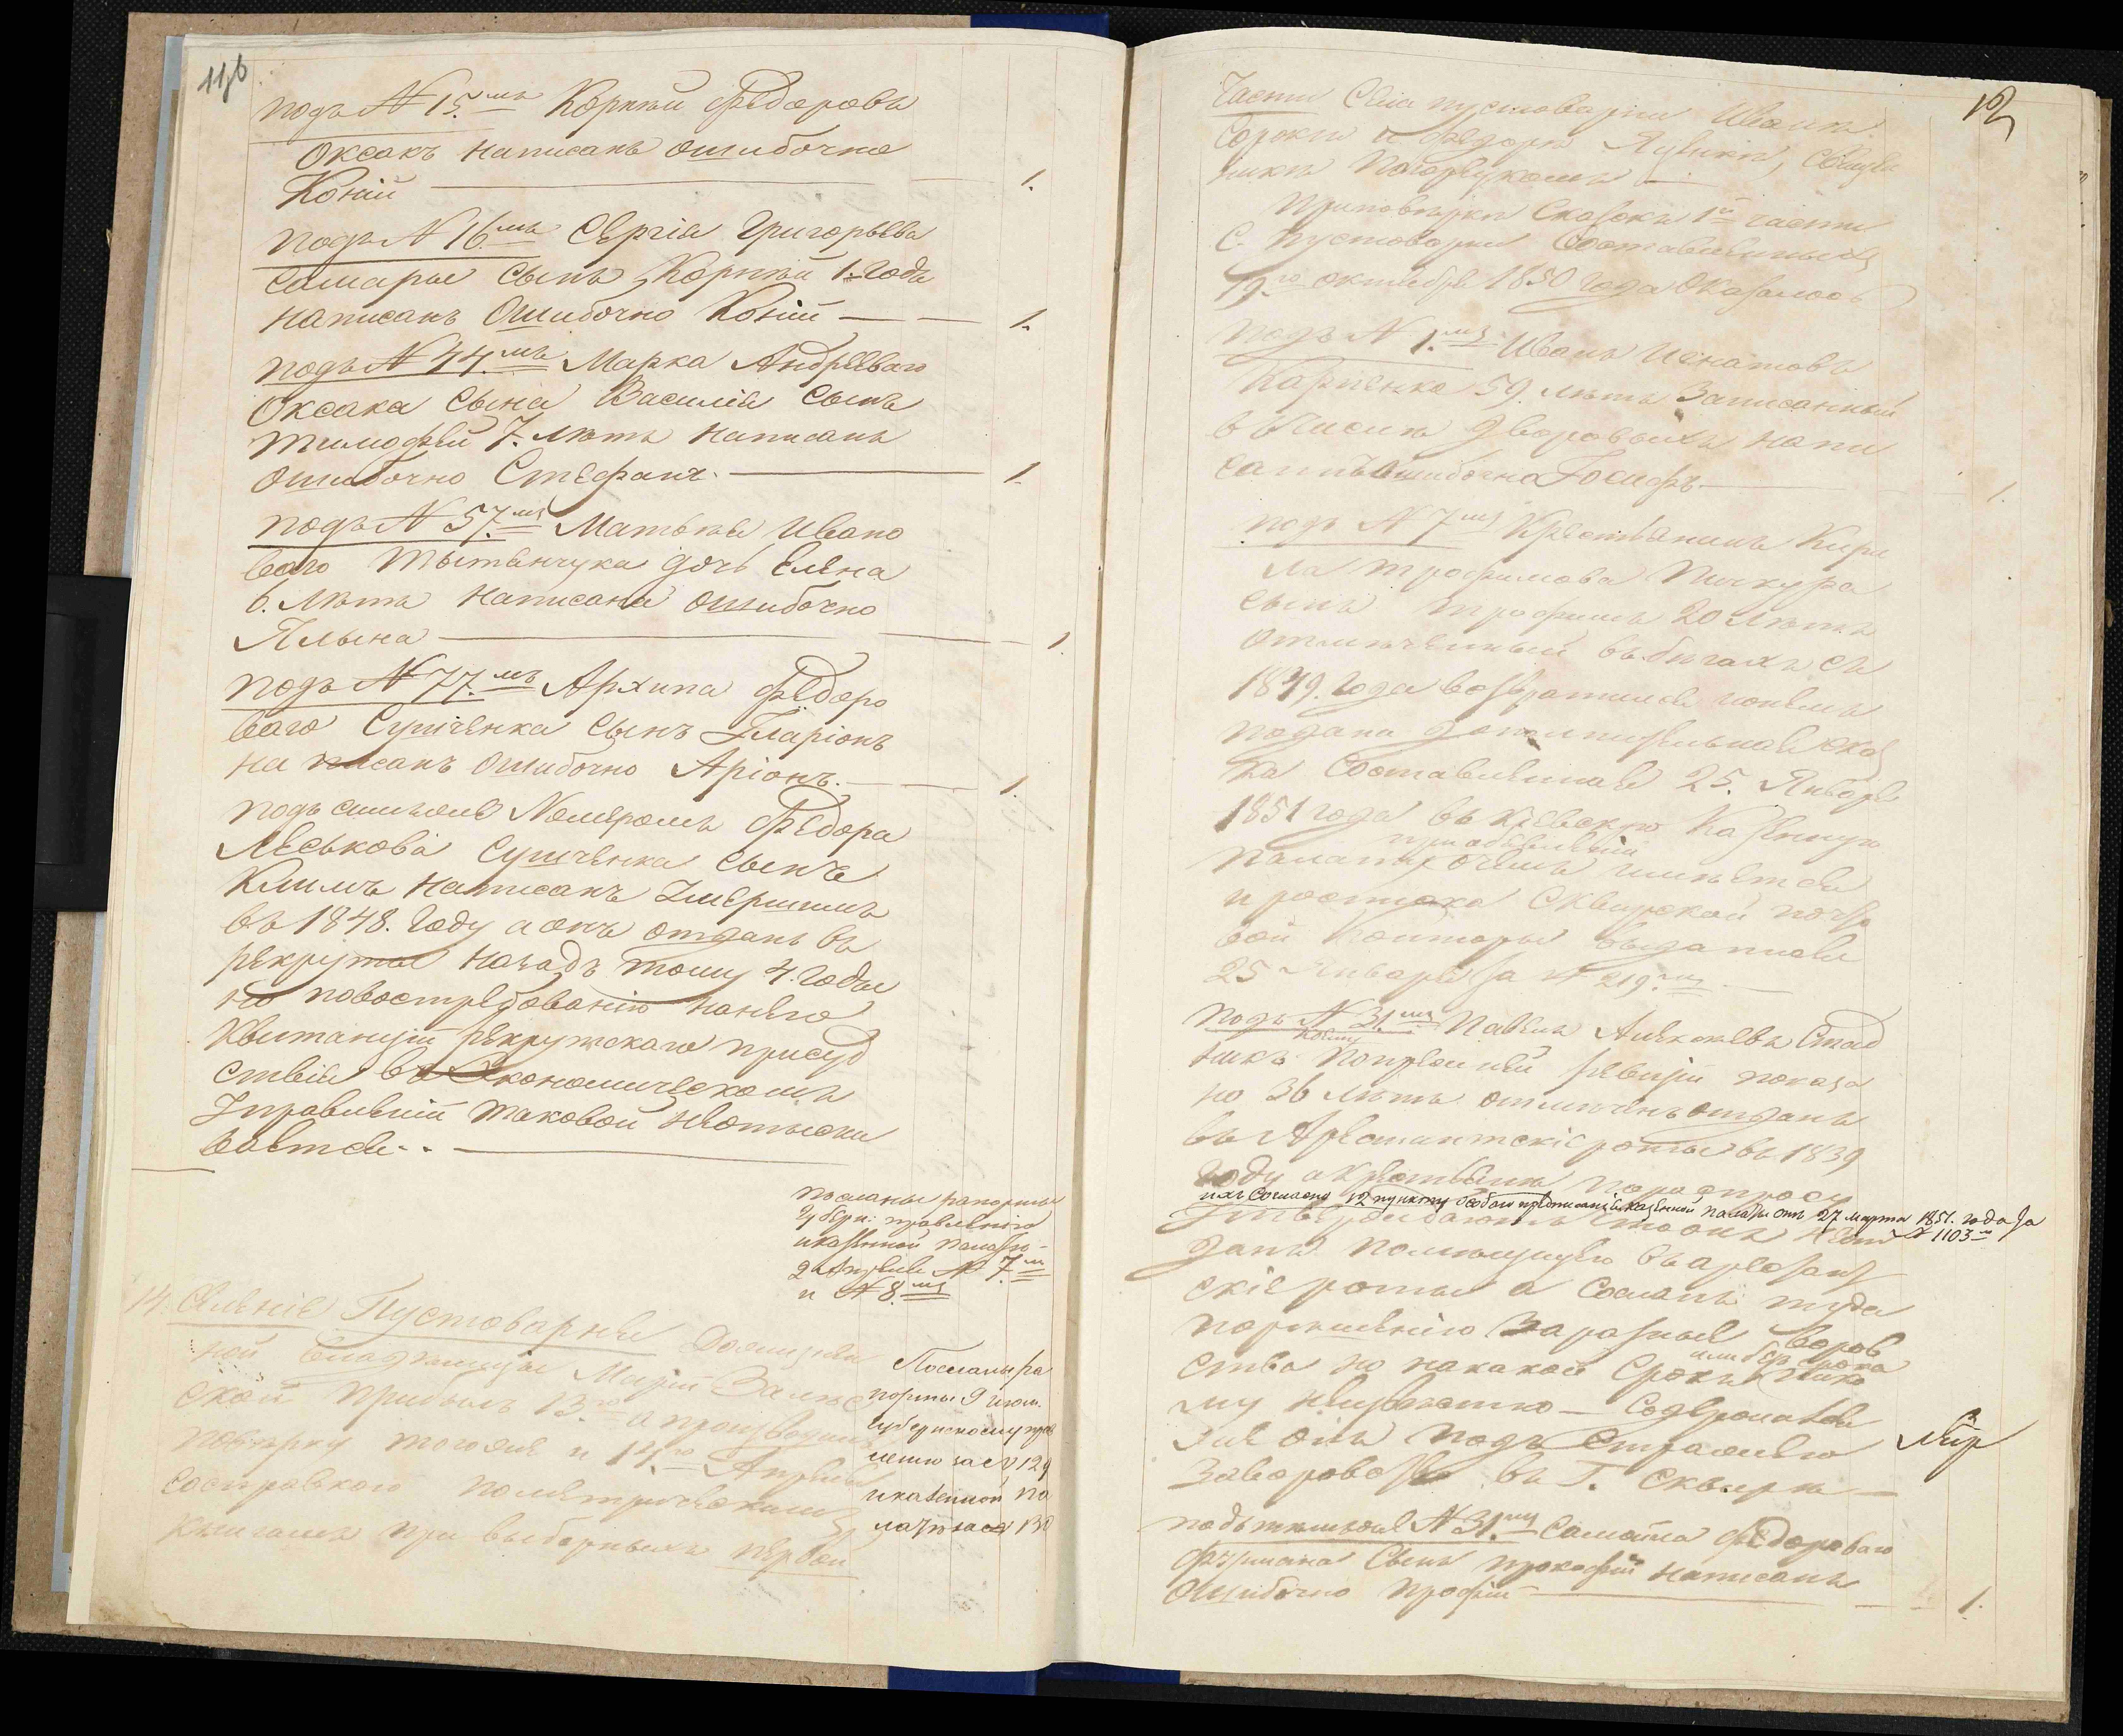 11об
подъ № 15.мъ Корнѣй Федоровъ
Оксакъ написанъ ошибочно
Коній 1.
подъ № 16.мъ Сергія Григорьева
Самарые сынъ Корнѣй 1. годъ
написанъ Ошибочно Коній 1.
подъ № 44.мъ Марка Андрееваго
Оксака сына Василія сынъ
тимофей 7. лѣтъ написанъ
ошибочно Стефанъ 1.
подъ № 57.мъ Матвѣя Ивано
ваго Тытянчука дочь Елена
6. лѣтъ написана ошибочно
Ялына 1.
подъ № 77.мъ Архипа Федоро
ваго Супіченка сынъ Іларіонъ
написанъ ошибочно Аріонъ 1.
подъ симъ же Номеромъ Федора
Леськова Супіченка сынъ
Климъ написанъ Умершимъ
въ 1848. году а онъ отданъ въ
рекруты назадъ тому 4. годы
но повостребованію нанего
Квитанціи рекрутскаго присуд
ствія въ Экономическомъ
Управленіи таковой неотыски
вается..
посланы рапорты
Губерн: правленію
иказенной палатѣ
2 Апреля № 7.м
и № 8.мъ
14. Селеніе Пустоварня
ной владѣлицы Маріи Залѣс
ской прибылъ 13.го а производилъ
повѣрку тогоже и 14.го Апреля
Состоявшаго
книгамъ при выборныхъ первой
Посланы ра
порты 9 июн.
Губернскому прав
ленію за № 129
иказенной па
латѣ за № 130
12
Части Села пустоварни Ивана
Сороки и Федора Яцюка, Священ
никѣ
Приповѣркѣ Сказокъ 1й части
С. Пустоварни Составленныхъ
19.го октября 1850 года Оказалось
подъ № 1.мъ Иванъ Игнатовъ
Карпенко 59. лѣтъ Записанный
въ числѣ дворовыхъ напи
санъ Ошибочно Іосифъ 1.
подъ № 7мъ Крестьянина Кири
ла трофимова Пичкура
сынъ трофимъ 20 лѣтъ
отмѣченный въ бѣгахъ съ
1849. года возвратился и онемъ
подана дополнительная сказ
ка Составленная 25. Января
1851 года въ Кіевскую Казенную
палату при объявленіи очемъ имѣется
росписка Сквирской почто
вой Конторы выданная
25 Января за № 219.мъ
подъ № 31.мъ Павелъ Алексѣевъ Стад
никъ коему попрежней ревизіи показа
но 36 лѣтъ отмѣченъ отданъ
въ Арестантскіе роты въ 1839
году а крестьяне порасспросу
ихъ Согласно 12 пункту Особаго предписанія казенной палаты отъ 27 марта 1851. года за № 1103м
утверждаютъ что онъ не от
данъ помѣщицею въ арестант
скіе роты а Сосланъ туда
порѣшенію За разные воров
ства но накакой срокъ или безъ срока нико
му неизвѣстно — Содержался
Же онъ подъ Стражею
Заворовство въ Г. Сквирѣ —
подътѣмъже № 31.мъ Самойла Федороваго
Фурмана Сынъ прокофій написанъ
Ошибочно профій 1.